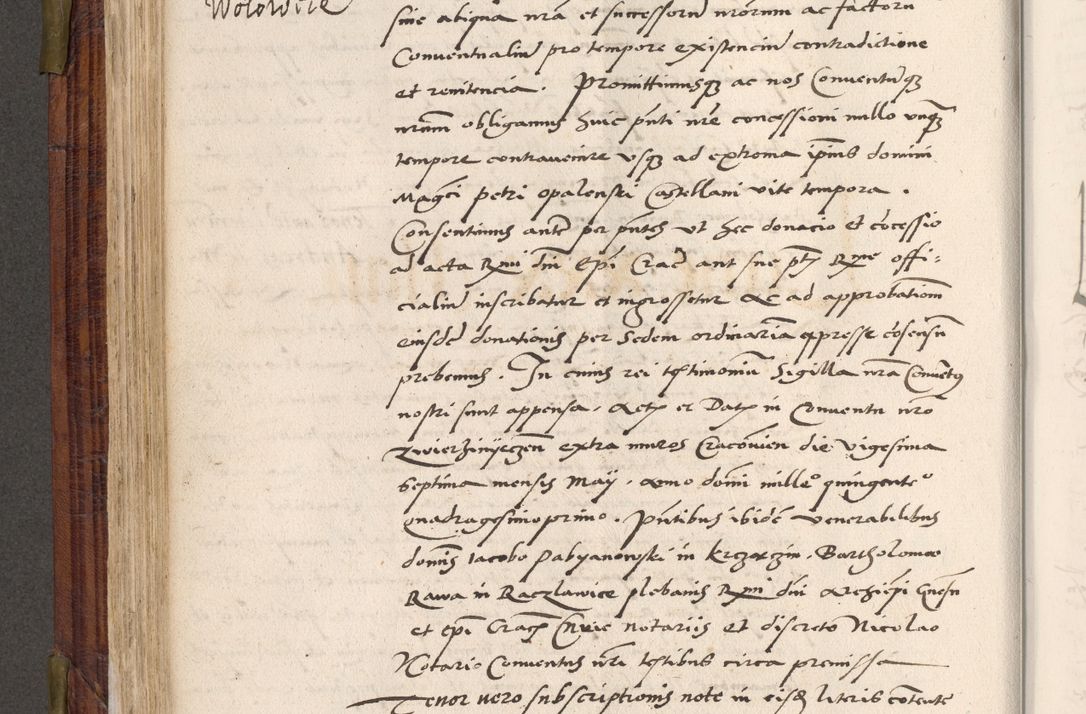 Wolowicze
sine aliqua nra et successorum nrorum ac factorum
Conventualium pro tempore existencium contradictione
et renitencia. Promittimusqz ac nos Conventumqz
nrum obligamus huic pnti nre concessioni nullo unqz
tempore contravenire usqz ad extrema ipius domini
Magci petri opalenski Castellani vite tempora.
Consentimus ante per pntes ut hec donacio et cocessio
ad acta Rmi dni Epi Crac aut sue pt Rme offi-
cialium inscribatur et ingrossetur ac ad approbationem
eiusde donationis per sedem ordinariam expresse cosensum
prebemus. In cuius rei testimonium Sigilla nra Conventus
nostri sunt appensa. Act et Dat in Conventu nro
Zwierzinyeczen extra muros Cracovien die vigesima
Septima mensis Maij. Anno domi millo quingento
quadragesimoprimo. Pntibus ibide venerabilibus
domis Iacobo Pabyanowski in Krzczczin. Bartholomeo
Rawa in Raczlawice plebanis Rmi dni Archiepi Gnesn
et epi Crac Curie notariis et discreto Nicolao
Notario Conventus nri testibus circa premissa
Tenor vero subscriptionis note in eisdem literis cotente